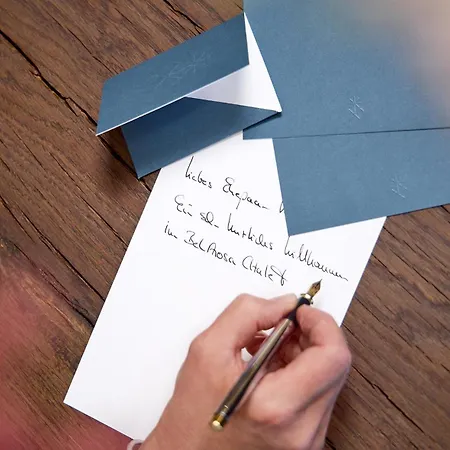 Liebes Ehepaar
Ein sehr herzliches Willkommen
im Bel Arosa Chalet